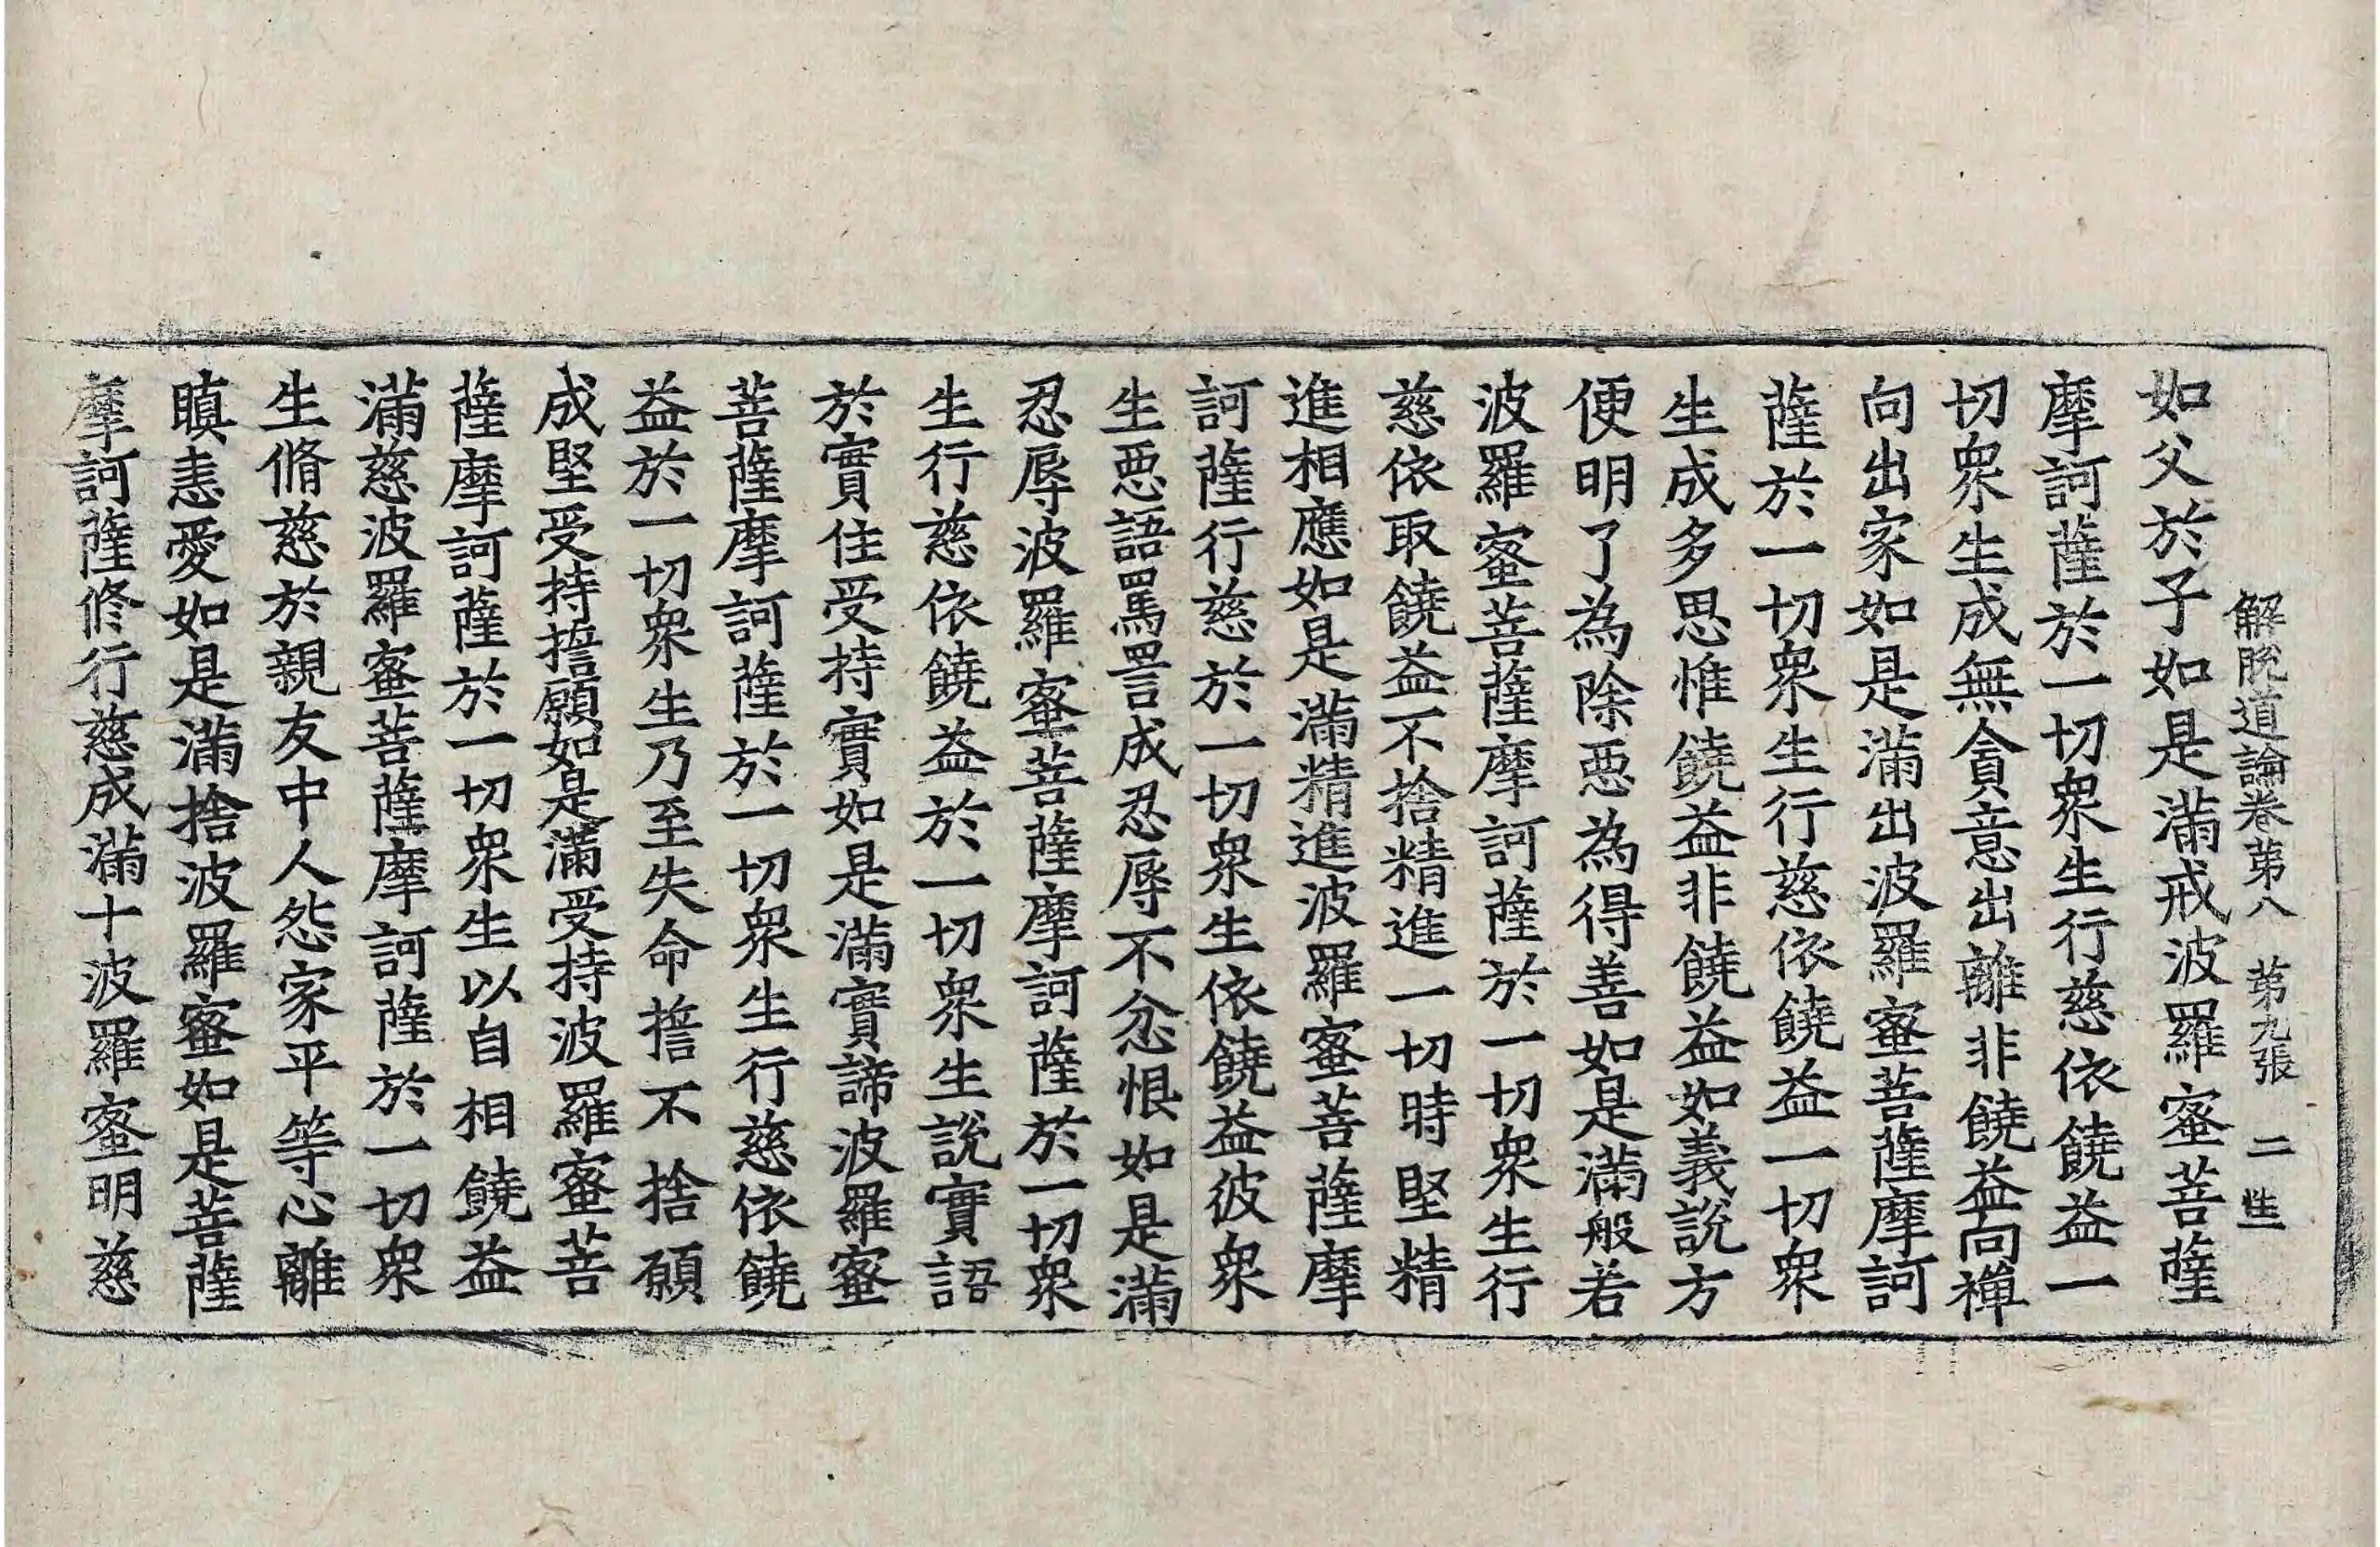 解脫道論卷第八　第九張　二　性
如父於子如是滿戒波羅蜜菩薩
摩訶薩於一切眾生行慈依饒益一
切眾生成無貪意出離非饒益向禪
向出家如是滿出波羅蜜菩薩摩訶
薩於一切眾生行慈依饒益一切眾
生成多思惟饒益非饒益如義說方
便明了為除惡為得善如是滿般若
波羅蜜菩薩摩訶薩於一切眾生行
慈依取饒益不捨精進一切時堅精
進相應如是滿精進波羅蜜菩薩摩
訶薩行慈於一切眾生依饒益彼眾
生惡語罵詈成忍辱不忿恨如是滿
忍辱波羅蜜菩薩摩訶薩於一切眾
生行慈依饒益於一切眾生說實語
於實住受持實如是滿實諦波羅蜜
菩薩摩訶薩於一切眾生行慈依饒
益於一切眾生乃至失命誓不捨願
成堅受持誓願如是滿受持波羅蜜菩
薩摩訶薩於一切眾生以自相饒益
滿慈波羅蜜菩薩摩訶薩於一切眾
生脩慈於親友中人怨家平等心離
瞋恚愛如是滿捨波羅蜜如是菩薩
摩訶薩修行慈成滿十波羅蜜明慈